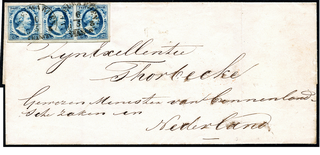 Zyn Excellentie
Thorbecke
Gewezen Minister van binnenland-
sche zaken in
Nederland